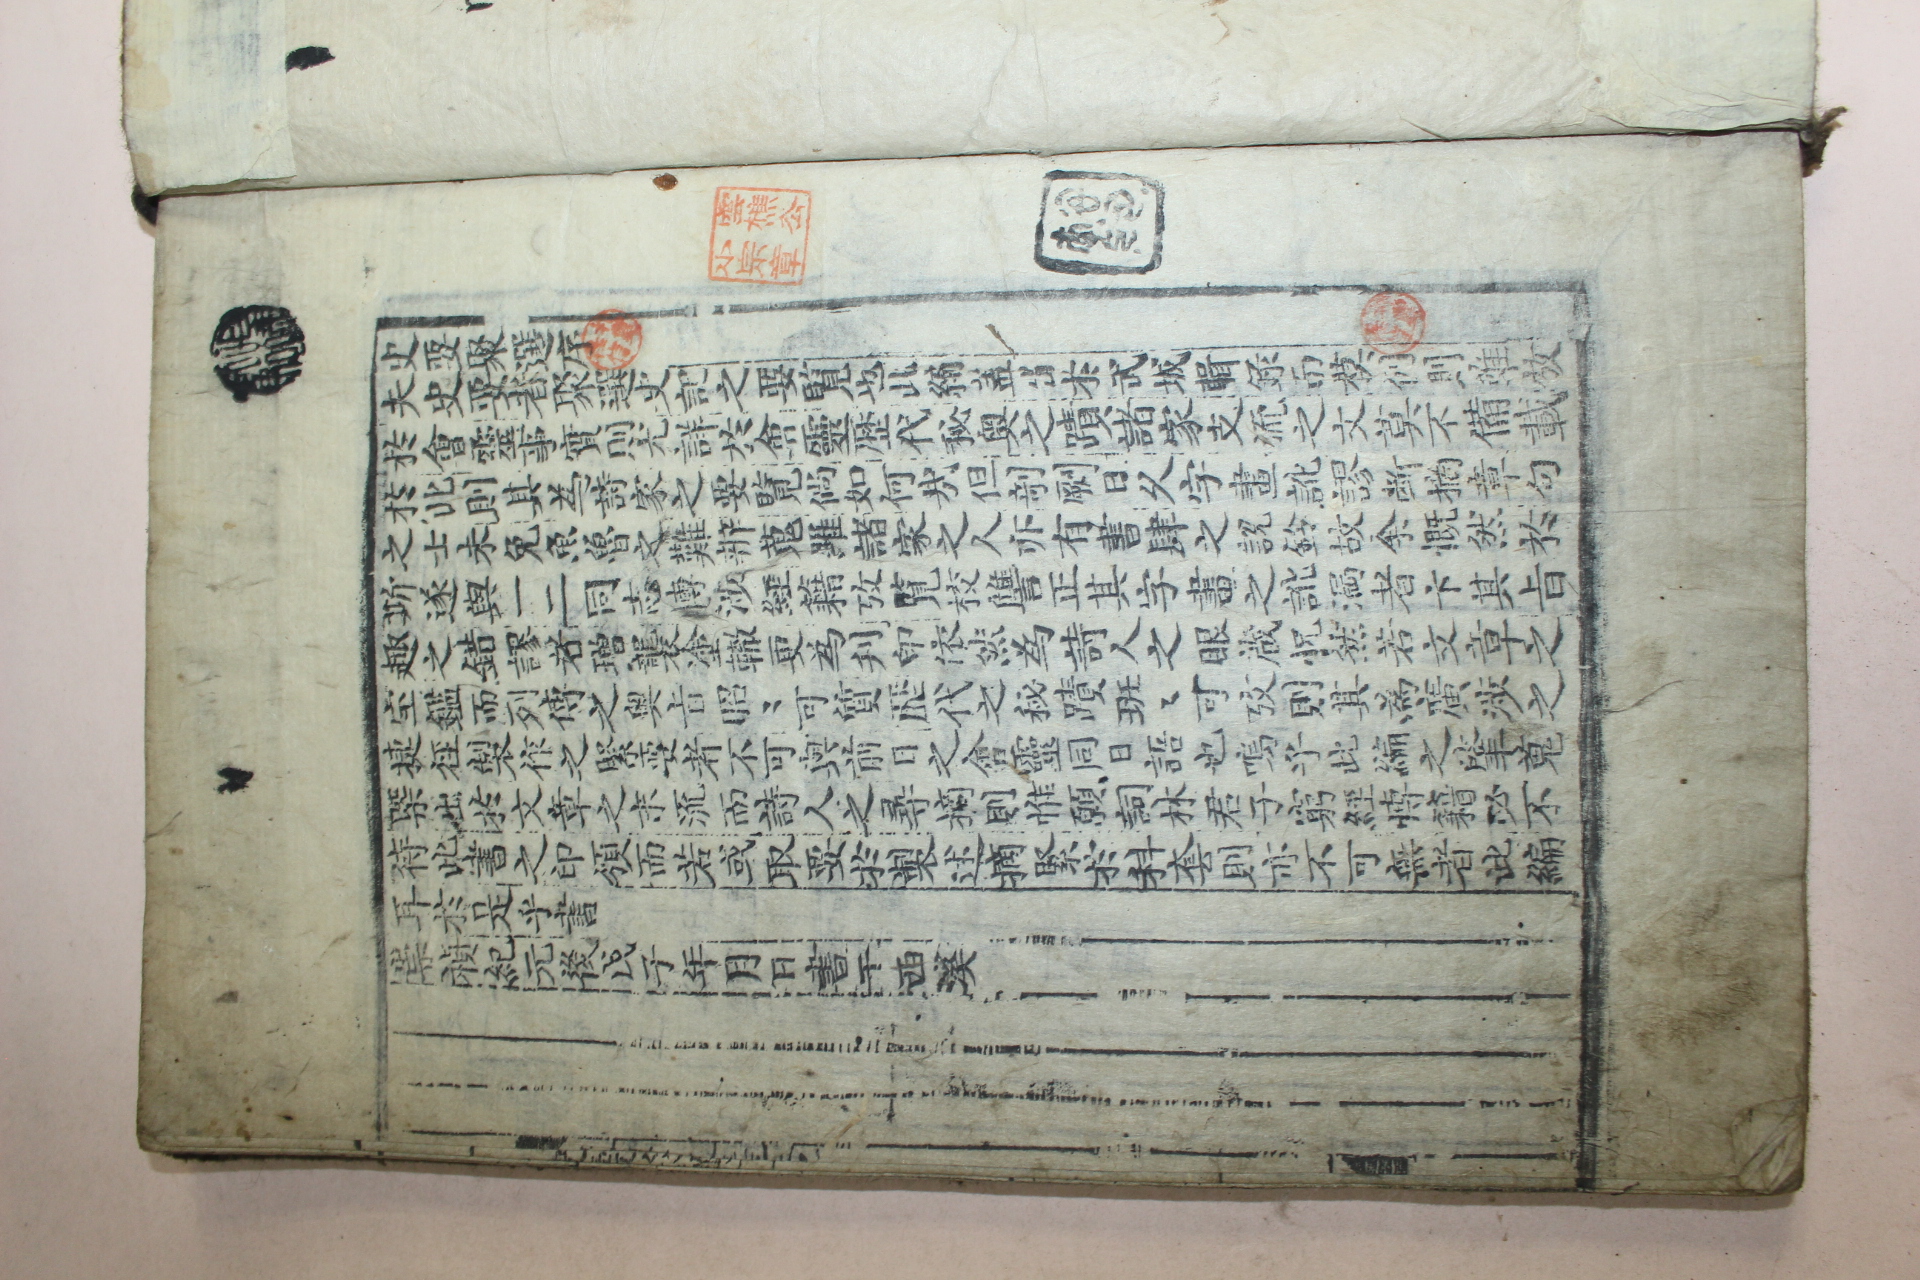 史要聚選序
夫史要者聚選史記之要覽也此編盖出於武城輯錄而模例則雖倣
於會靈事實則尤詳於會靈歷代秘奧之蹟諸家支流之文莫不備載
於此則其為詩家之要覽倘如何㢤但剞劂日久字畫訛謬斷摘章句
之士未免魚魯之難辨蒐雖諸家之人亦有書肆之說鈴故余慨然於
斯遂與一二同志博涉經籍攷覽校讐正其字畫之訛漏者卞其旨
趣之錯謬者增襲塗轍更為刋印依然為詩人之眼藏怳然若文章之
宝鑑而列傳之奧旨昭〻可質歷代之秘蹟班〻可攷則其為廣涉之
捷徑製作之緊要者不可與前日之會靈同日語也嗚乎此編之肇蒐
槩出於文章之末流而詩人之尋摘則惟願詞林君子窮經博籍必不
待此書之印頒而若或取要於製述摘緊於科套則亦不可無者此編
耳於是乎書
崇禎紀元後戊子年月日書于西溪
雲樵公
小宗章